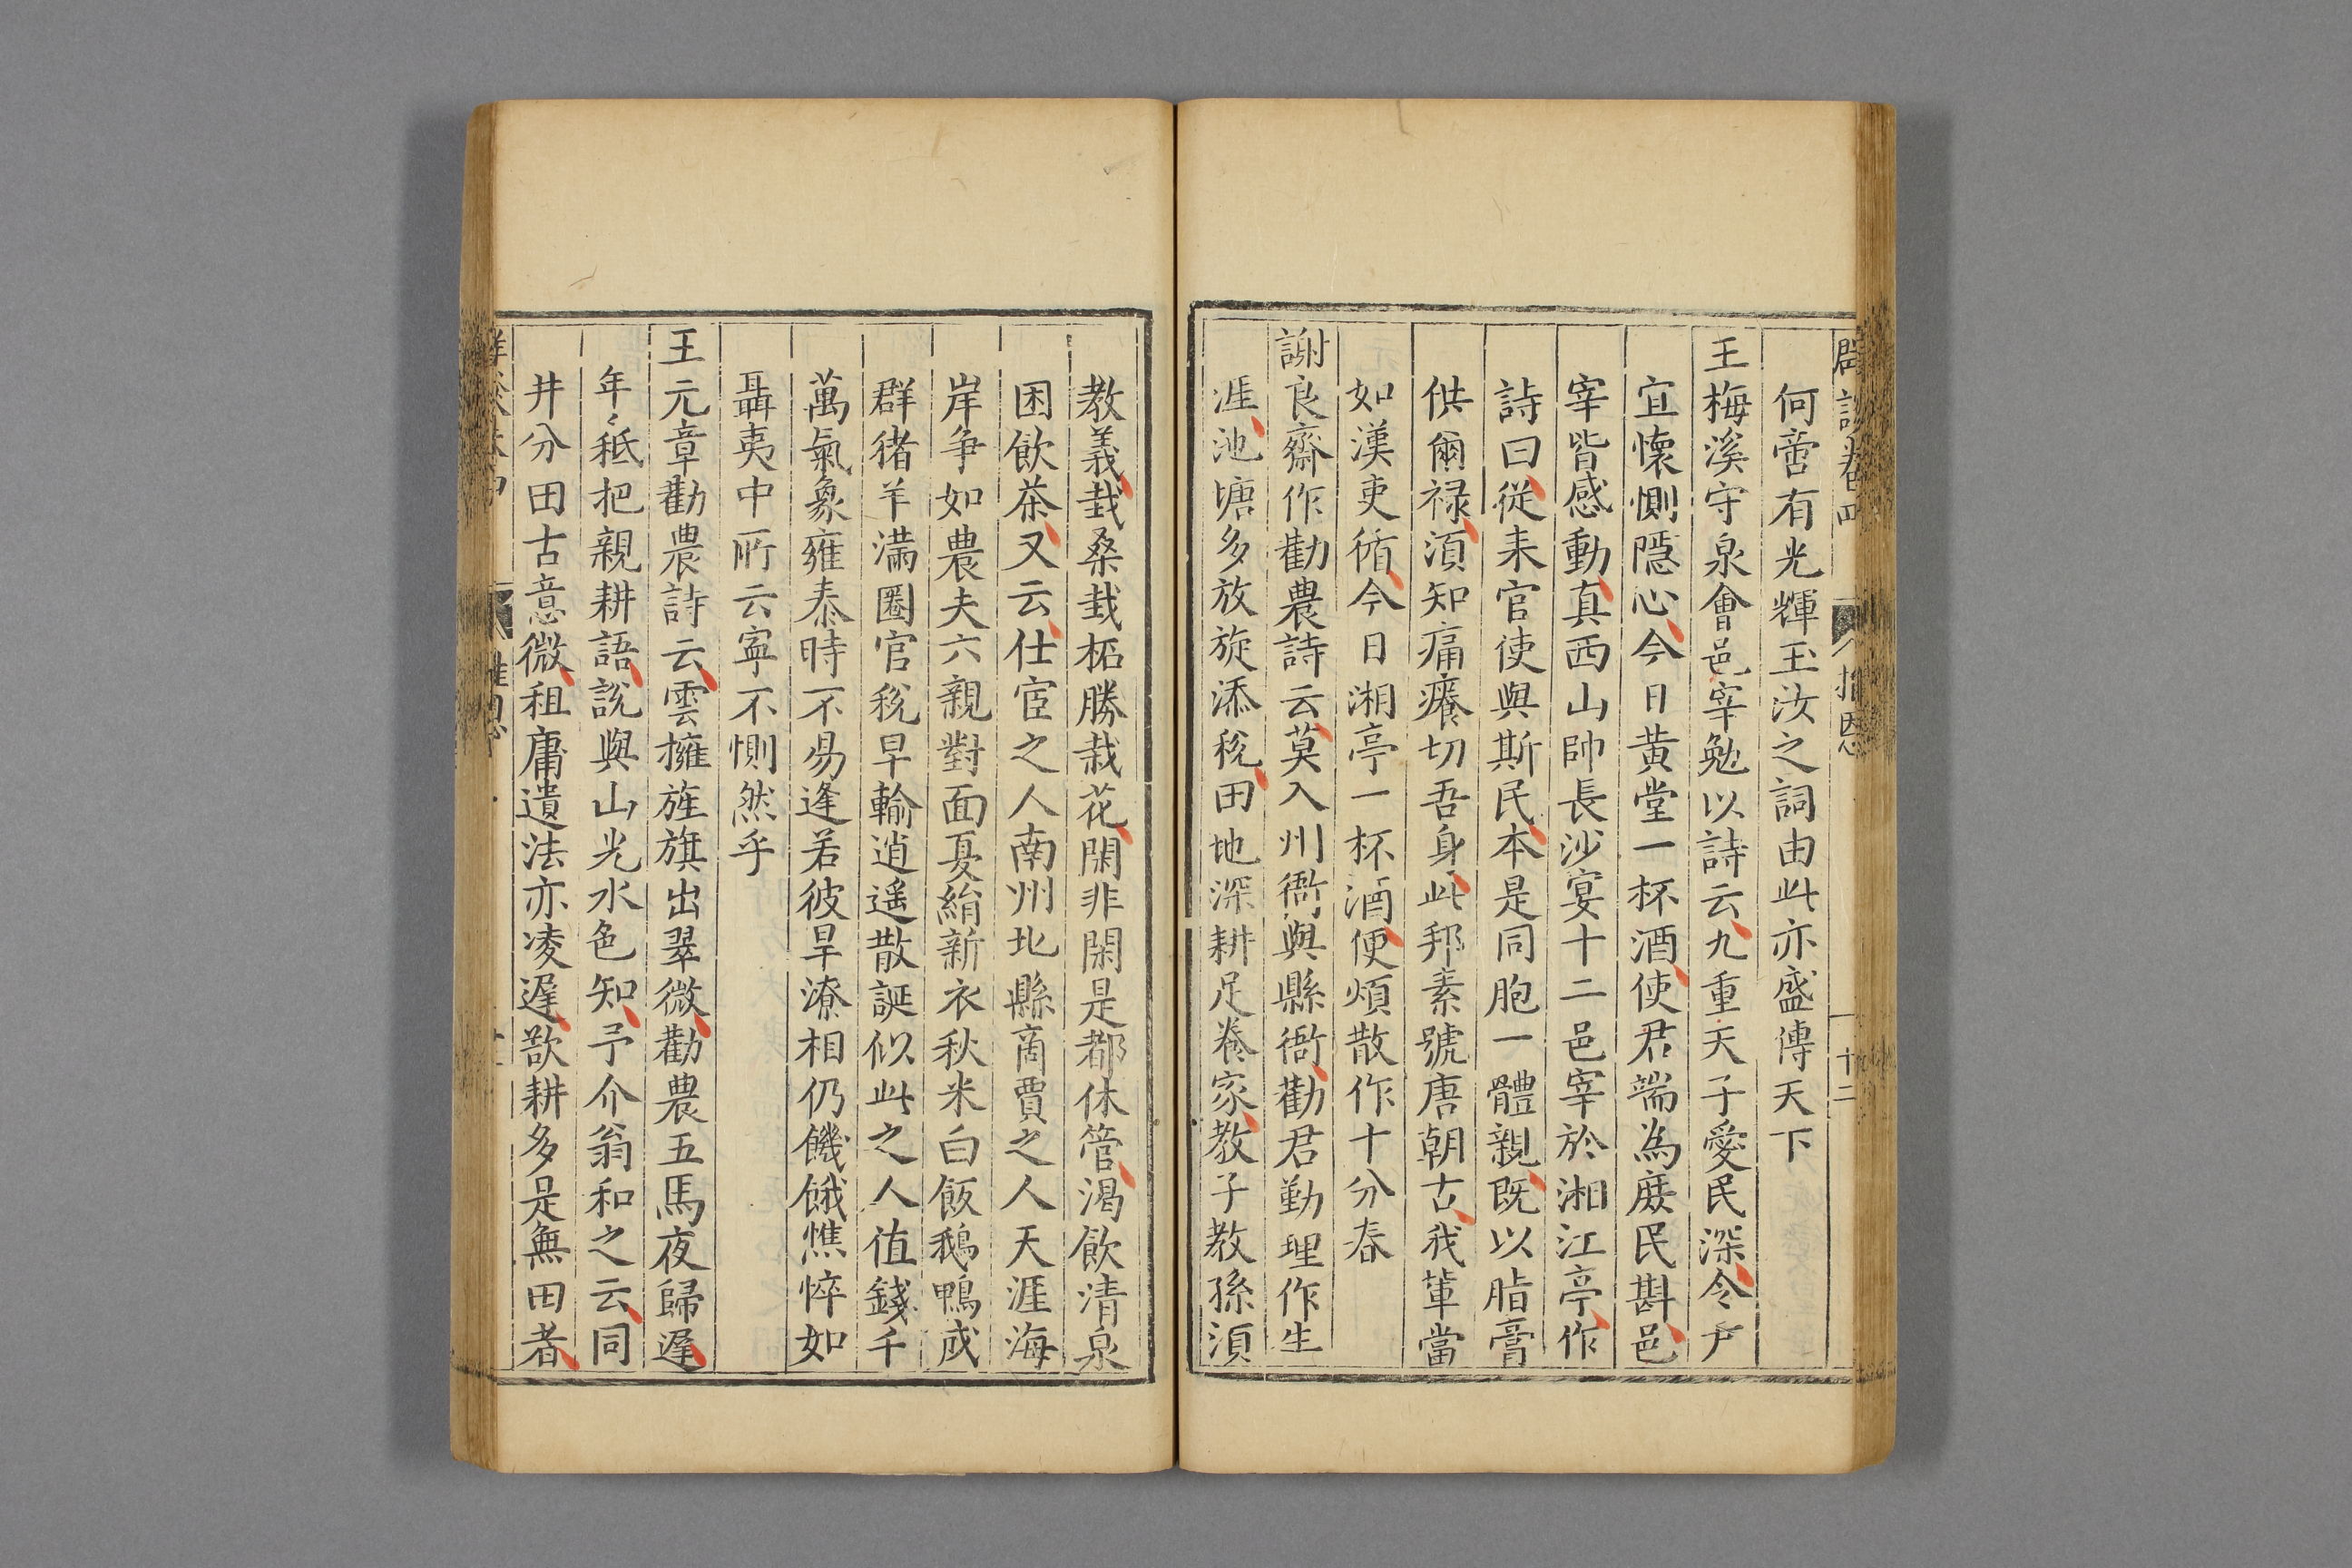 何啻有光輝玉汝之詞由此亦盛傳天下
王梅溪守泉會邑宰勉以詩云九重天子愛民深令尹
宜懷惻隱心今日黄堂一杯酒使君端為庻民斟邑
宰皆感動真西山帥長沙宴十二邑宰於湘江亭作
詩曰從来官使與斯民本是同胞一體親既以脂膏
供爾禄湏知痛癢切吾身此邦素號唐朝古我輩當
如漢吏循今日湘亭一杯酒便煩散作十分春
謝良齋作勸農詩云莫入州衙與縣衙勸君勤理作生
涯池塘多放旋添稅田地深耕足養家教子教孫湏
教義栽桑栽柘勝栽花閑非閑是都休管渴飲清泉
困飲茶又云仕宦之人南州北縣商賈之人天涯海
岸争如農夫六親對面夏絹新衣秋米白飯鵝鴨成
群猪羊滿圈官稅早輸逍遥散誕似此之人值錢千
萬氣象雍泰時不易逢若彼旱潦相仍饑餓憔悴如
聶夷中所云寧不惻然乎
王元章勸農詩云雲擁旌旗出翠微勸農五馬夜歸遲
年〻秪把親耕語說與山光水色知予介翁和之云同
井分田古意微租庸遺法亦凌遲欲耕多是無田者